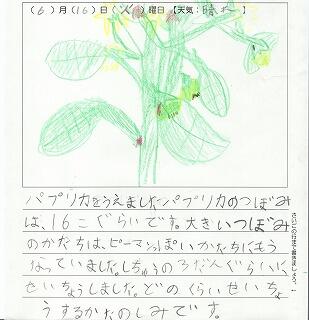 (6)月(16)日(火)曜日【天気:晴れ】
パプリカをうえましたパプリカのつぼみ
は、16こぐらいです。大きいつぼみ
のかたちは、ピーマンっぽいかたちにもう
なっていました。しちゅうの3だんぐらいに
せいちょうしました。どのくらいせいちょ
うするかたのしみです。